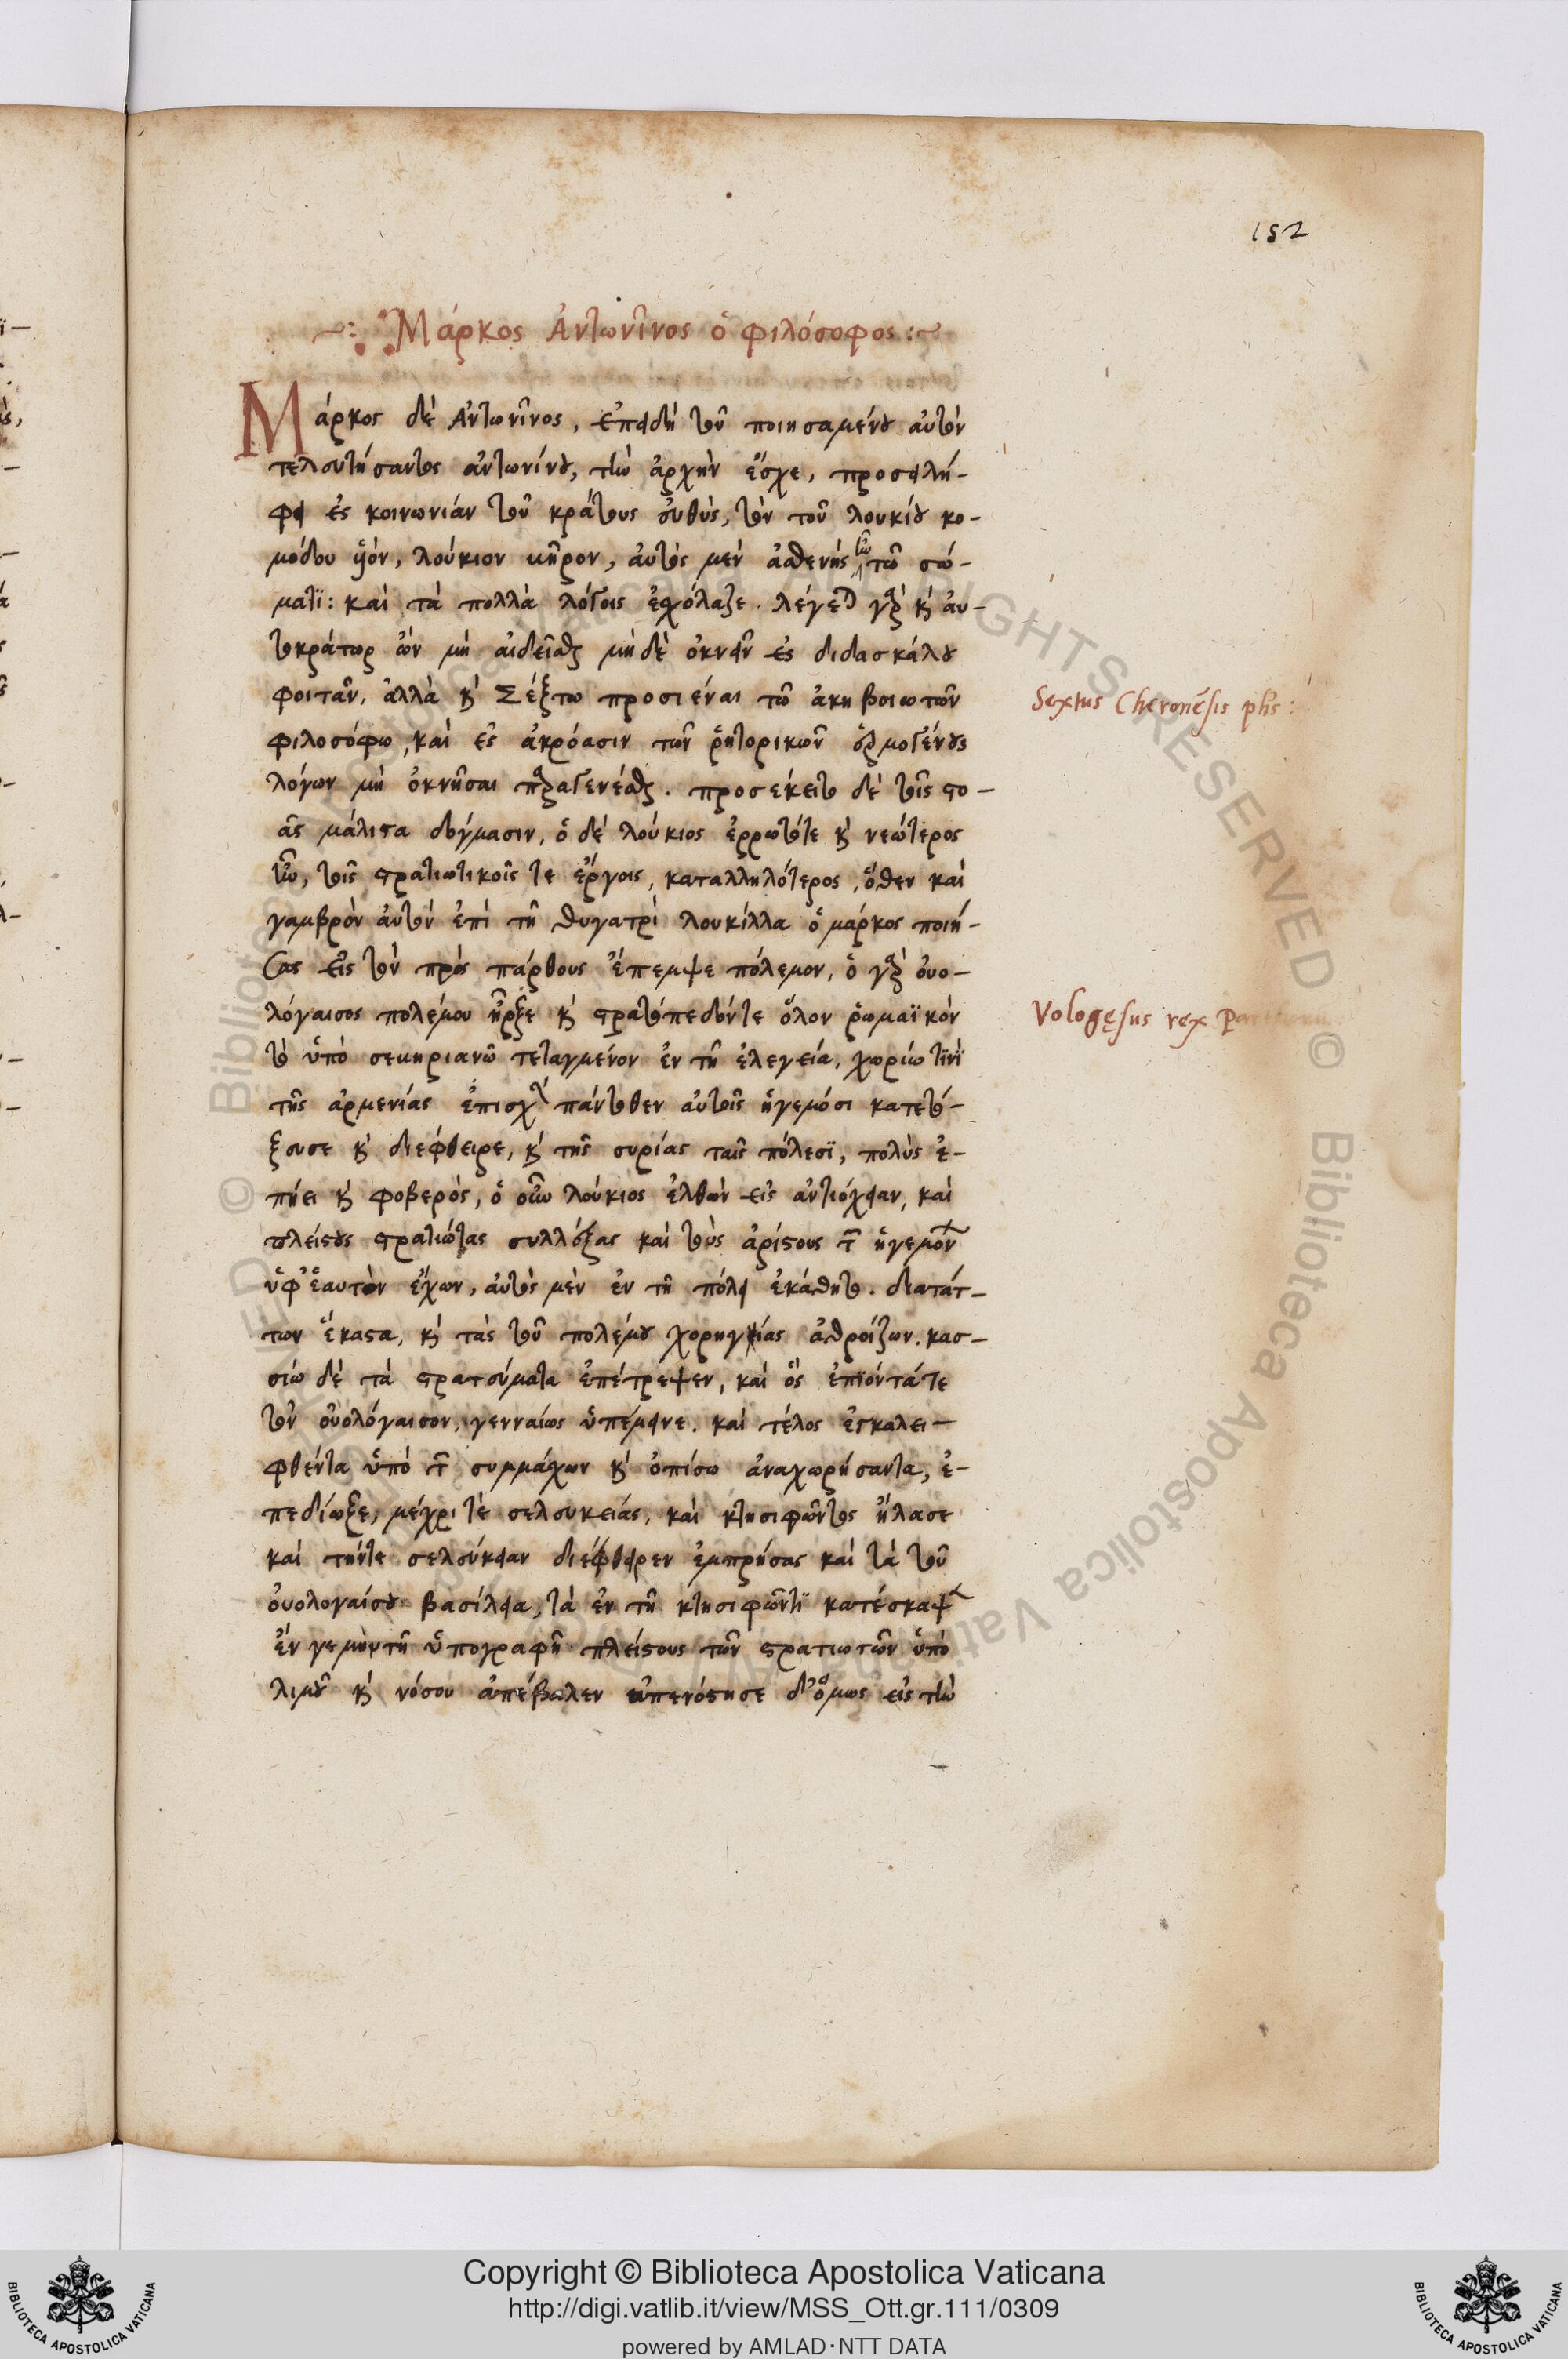 152
Μάρκος Ἀντωνῖνος ὁ φιλόσοφος:
Μάρκος δὲ Ἀντωνῖνος, ἐπειδὴ τοῦ ποιησαμένου αὐτὸν
τελευτήσαντος ἀντωνίνου, τὴν ἀρχὴν ἔσχε, προσειλή-
φει ἐς κοινωνίαν τοῦ κράτους εὐθὺς, τὸν τοῦ λουκίου κο-
μόδου υἱὸν, λούκιον υῆρον, αὐτὸς μὲν ἀσθενὴς ὢν τῶ σώ-
ματϊ: καὶ τὰ πολλὰ λόγοις ἐσχόλαζε. λέγεται γὰρ καὶ ἀυ-
τοκράτωρ ὢν μὴ αἰδεῖσθαι μὴδὲ ὀκνεῖν ἐς διδασκάλου
φοιτᾶν, ἀλλὰ καὶ Σέξτω προσιέναι τῶ ἐκ βοιωτῶν
φιλοσόφω, καὶ ἐς ἀκρόασιν τῶν ῥητορικῶν ἑρμογένους
λόγων μὴ ὀκνῆσαι παραγενέσθαι. προσέκειτο δὲ τοῖς στο-
ᾶς μάλιστα δόγμασιν, ὁ δὲ λούκιος ἐρρωτότε καὶ νεώτερος
ἦν, τοῖς στρατιωτικοῖς τε ἔργοις, καταλληλότερος, ὅθεν καὶ
γαμβρὸν αὐτὸν ἐπὶ τῆ θυγατρὶ λουκίλλα ὁ μάρκος ποιή-
σας εἰς τὸν πρὸς πάρθους ἔπεμψε πόλεμον, ὁ γὰρ ὀυο-
λόγαισος πολέμου ἦρξε καὶ στρατόπεδόντε ὅλον ῥωμαϊκὸν
τὸ ὑπὸ σευηριανῶ τεταγμένον ἐν τῆ ἐλεγεία, χωρίω τινὶ
τῆς ἀρμενίας ἐπισχὼν πάντοθεν αὐτοῖς ἡγεμόσι κατετό-
ξευσε καὶ διέφθειρε, καὶ τῆς συρίας ταῖς πόλεσϊ, πολὺς ἐ-
πήει καὶ φοβερὸς, ὁ οὖν λούκιος ἐλθὼν εἰς ἀντιόχειαν, καὶ
πλείστους στρατιώτας συλλέξας καὶ τοὺς ἀρίστους τῶν ἡγεμόνων
ὑφ’ἑαυτὸν ἔχων, αὐτὸς μὲν ἐν τῆ πόλει ἐκάθητο. διατάτ-
των ἕκαστα, καὶ τὰς τοῦ πολέμου χορηγίας ἀθροίζων. κασ-
σίω δὲ τὰ στρατεύματα ἐπέτρεψεν, καὶ ὃς ἐπϊόντάτε
τὸν οὐολόγαισον, γενναίως ὑπέμεινε. καὶ τέλος ἐγκαλει-
φθέντα ὑπὸ τῶν συμμάχων καὶ ὀπίσω ἀναχωρήσαντα, ἐ-
πεδίωξε, μέχρι τὲ σελευκείας, καὶ κτησιφῶντος ἤλασε
καὶ τήντε σελεύκειαν διέφθειρεν ἐμπρήσας καὶ τὰ τοῦ
ὀυολογαίσου βασίλεια, τὰ ἐν τῆ κτησιφῶντϊ κατέσκαψεν
ἐν γεμὴν τῆ ὑπογραφῆ πλείστους τῶν στρατιωτῶν ὑπὸ
λιμοῦ καὶ νόσου ἀπέβαλεν ἀπενόστησε δ’ὅμως εἰς τὴν
Sextus Cheronēsis phs:
Vologęsus rex
Copyright © Biblioteca Apostolica Vaticana
http://digi.vatlib.it/view/MSS_Ott.gr.111/0309
powered by AMLAD·NTT DATA
BIBLIOTECA APOSTOLICA VATICANA
BIBLIOTECA APOSTOLICA VATICANA